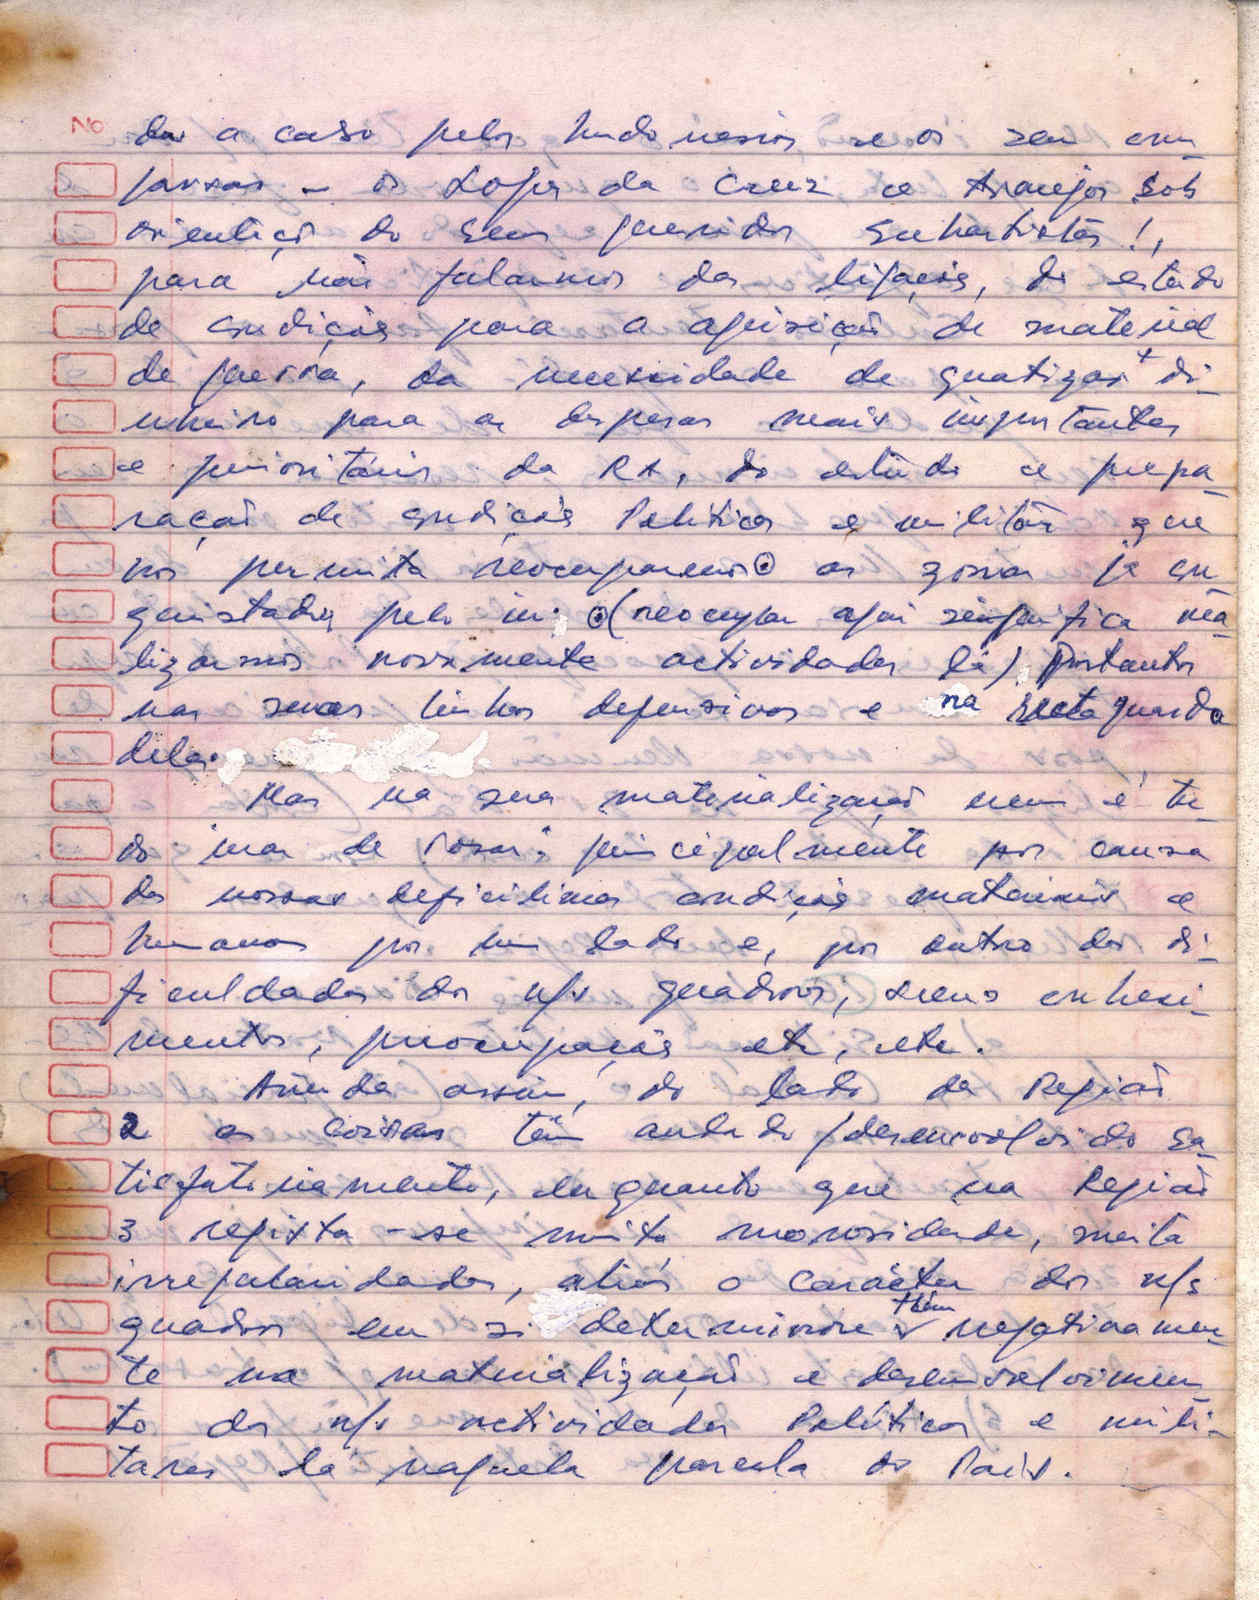 No
da a caso pelos Indonésios e os seu com
parsas - os Lopes da Cruz e Araujos sob
orientação do seus queridos Suhartistas!,
para não falarmos das ligações, do estudo
de condições para a aquisição de material
de guerra, da necessidade de + di
nheiro para as despesas mais importantes
e prioritárias da RA, do estudo e prepa-
ração de condições Políticas e militar que
nos permita reocuparmos as zonas já con
quistadas pelo in. (reocupar aqui significa rea-
lizarmos novamente actividades lá) Portanto
nas suas linhas defensivas e na rectaguarda
delas.
Mas na sua materialização nem é tu-
do "mar de rosas" principalmente por causa
das nossas deficitimas condições materiais e
humanas por um lado e, por outro das di-
ficuldades dos n/s quadros, seus conheci-
mentos, preocupações etc, etc.
Ainda assim, do lado da Região
2 as coisas têm andado/desenvolvido sa-
tisfatoriamente, enquanto que na Região
3 regista-se muita morosidade, muita
irregularidades, aliás o carácter dos n/s
quadros em si determinou tbém negativamen-
te na materialização e desenvolvimen
to das n/s actividades Políticas e mili-
tares lá naquela parcela do País.